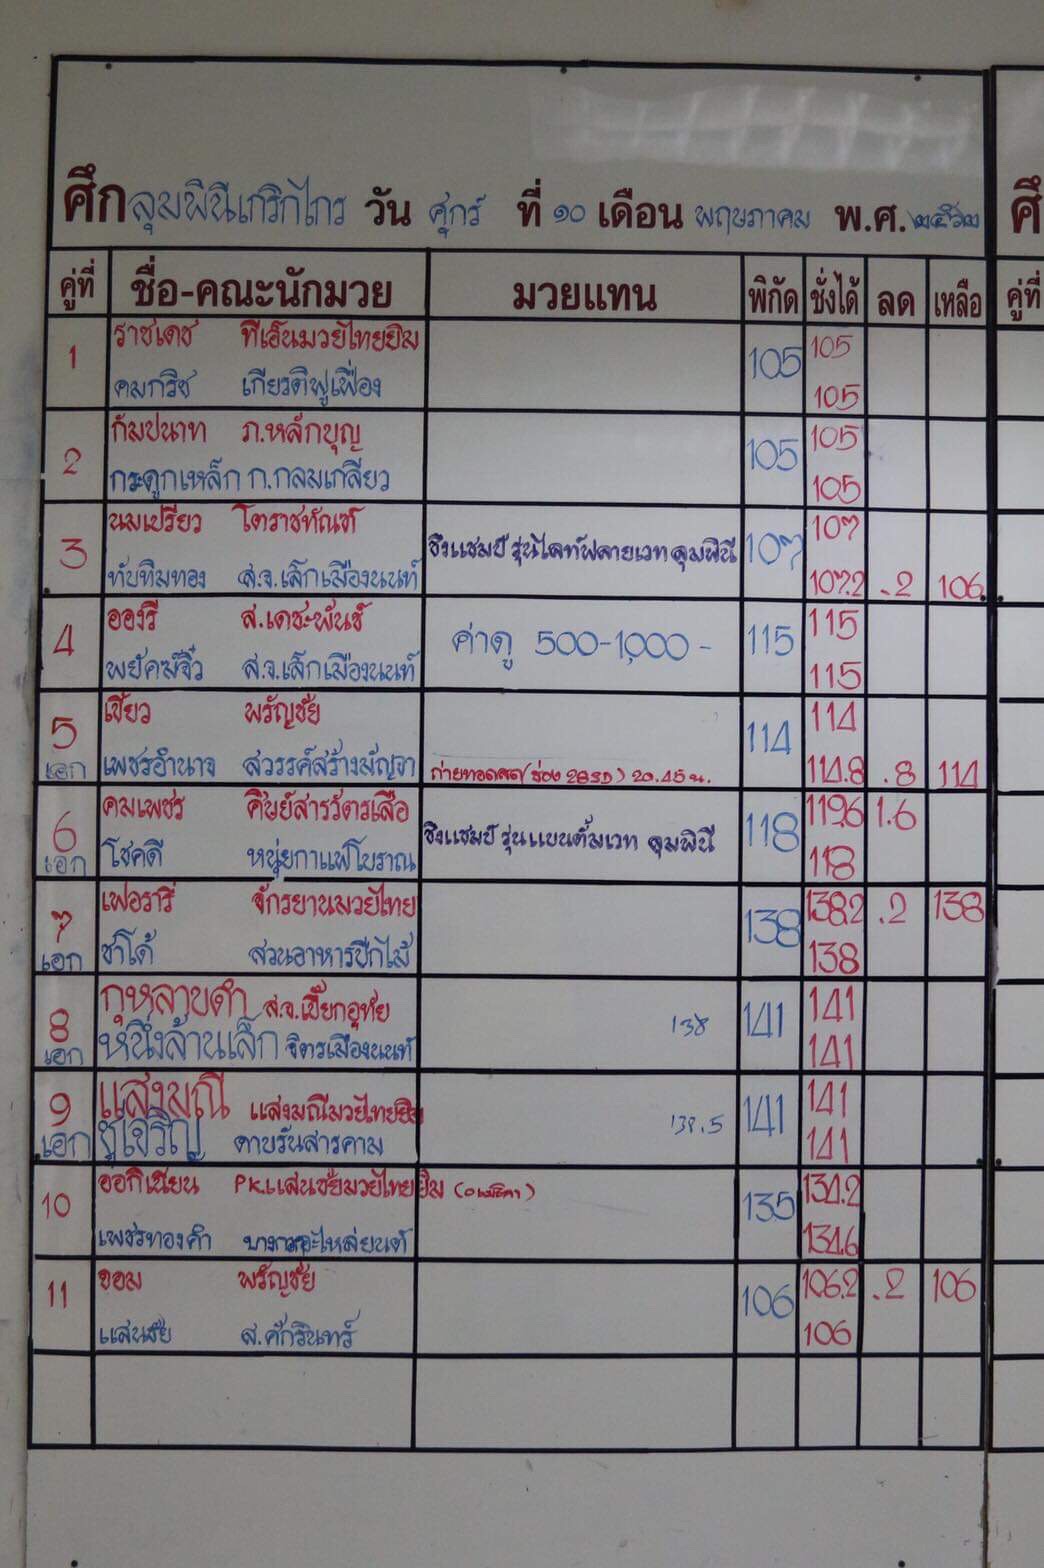 ศึกลุมพินีเกริกไกร วัน ศุกร์ ที่ ๑๐ เดือน พฤษภาคม พ.ศ. ๒๕๖๒ ศึ
คู่ที่ ชื่อ-คณะนักมวย มวยแทน พิกัด ชั่งได้ ลด เหลือ คู่ที่
1 ราชเดช ทีเอ็นมวยไทยยิม 105 105
คมกริช เกียรติฟูเฟื่อง 105
2 กัมปนาท ภ.หลักบุญ 105 105
กระดูกเหล็ก ก.กลมเกลียว 105
3 นมเปรี้ยว โตราชทัณฑ์ ชิงแชมป์ รุ่นไลท์ฟลายเวท ลุมพินี 107 107
ทับทิมทอง ส.จ.เล็กเมืองนนท์ 107.2 .2 106
4 ององรี ส.เดชะพันธ์ ค่าดู 500-1,000 - 115 115
พยัคฆ์จิ๋ว ส.จ.เล็กเมืองนนท์ 115
5 เขี้ยว พรัญชัย 114 114
เอก เพชรอำนาจ สวรรค์สร้างมัญจา ถ่ายทอดสด (ช่อง 28 SD) 20.45 น. 114.8 .8 114
6 คมเพชร ศิษย์สารวัตรเสือ ชิงแชมป์ รุ่นแบนตั้มเวท ลุมพินี 118 119.6 1.6
เอก โชคดี หนุ่ยกาแฟโบราณ 118
7 เฟอรารี่ จักรยานมวยไทย 138 138.2 .2 138
เอก ซาโต้ สวนอาหารปีกไม้ 138
8 กุหลาบดำ ส.จ.เปี๊ยกอุทัย 138 141 141
เอก หนึ่งล้านเล็ก จิตรเมืองนนท์ 141
9 แสงมณี แสงมณีมวยไทยยิม 138.5 141 141
เอก งูเจริญ ดาบรันสารคาม 141
10 ออกิเนียน P.K.แสนชัยมวยไทยยิม 135 134.2
เพชรทองคำ 134.6
11 จอม พรัญชัย 106 106.2 .2 106
แสนชัย ส.ศักรินทร์ 106